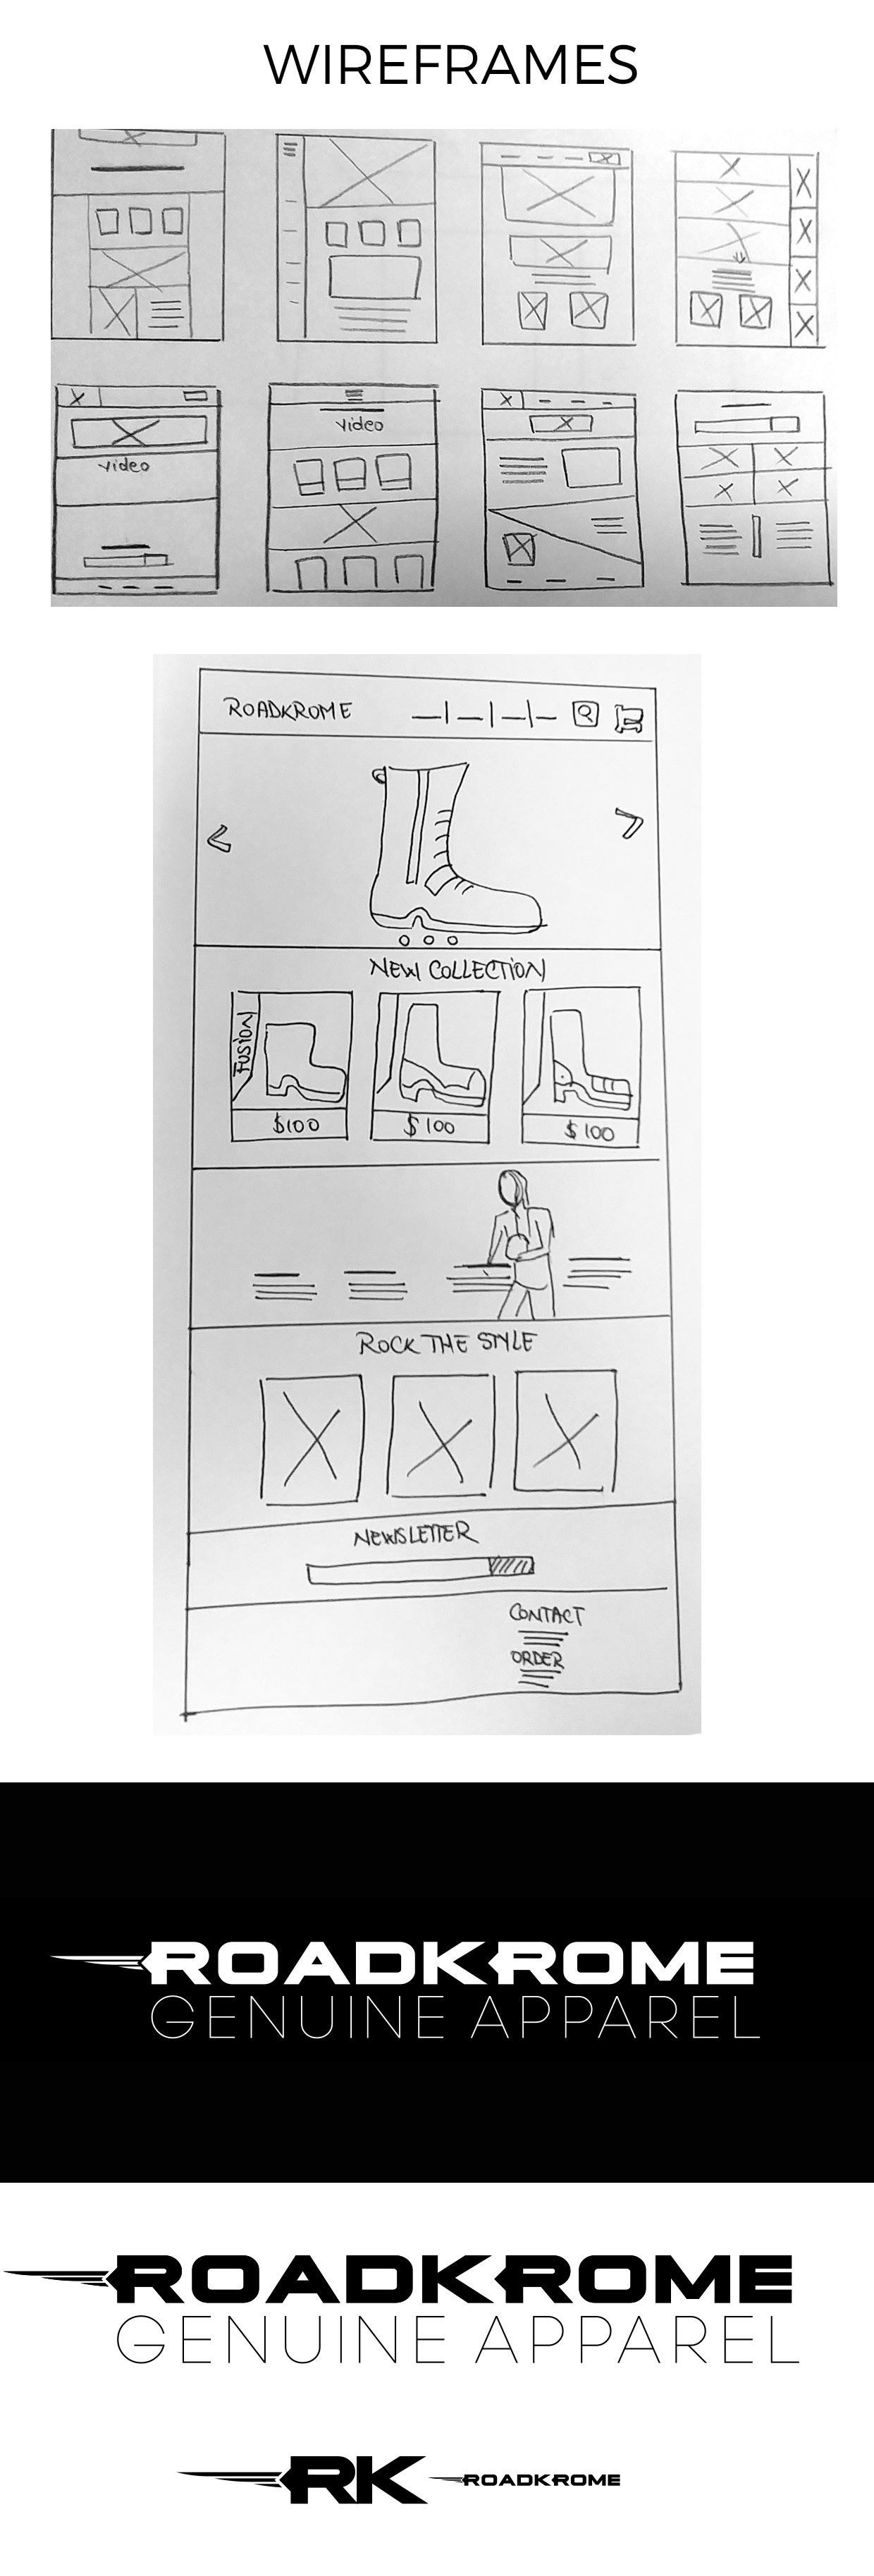 WIREFRAMES
video
video
ROADKROME
NEW COLLECTION
FUSION
$100
$100
$100
ROCK THE STYLE
NEWSLETTER
CONTACT
ORDER
ROADKROME
GENUINE APPAREL
ROADKROME
GENUINE APPAREL
RK
ROADKROME